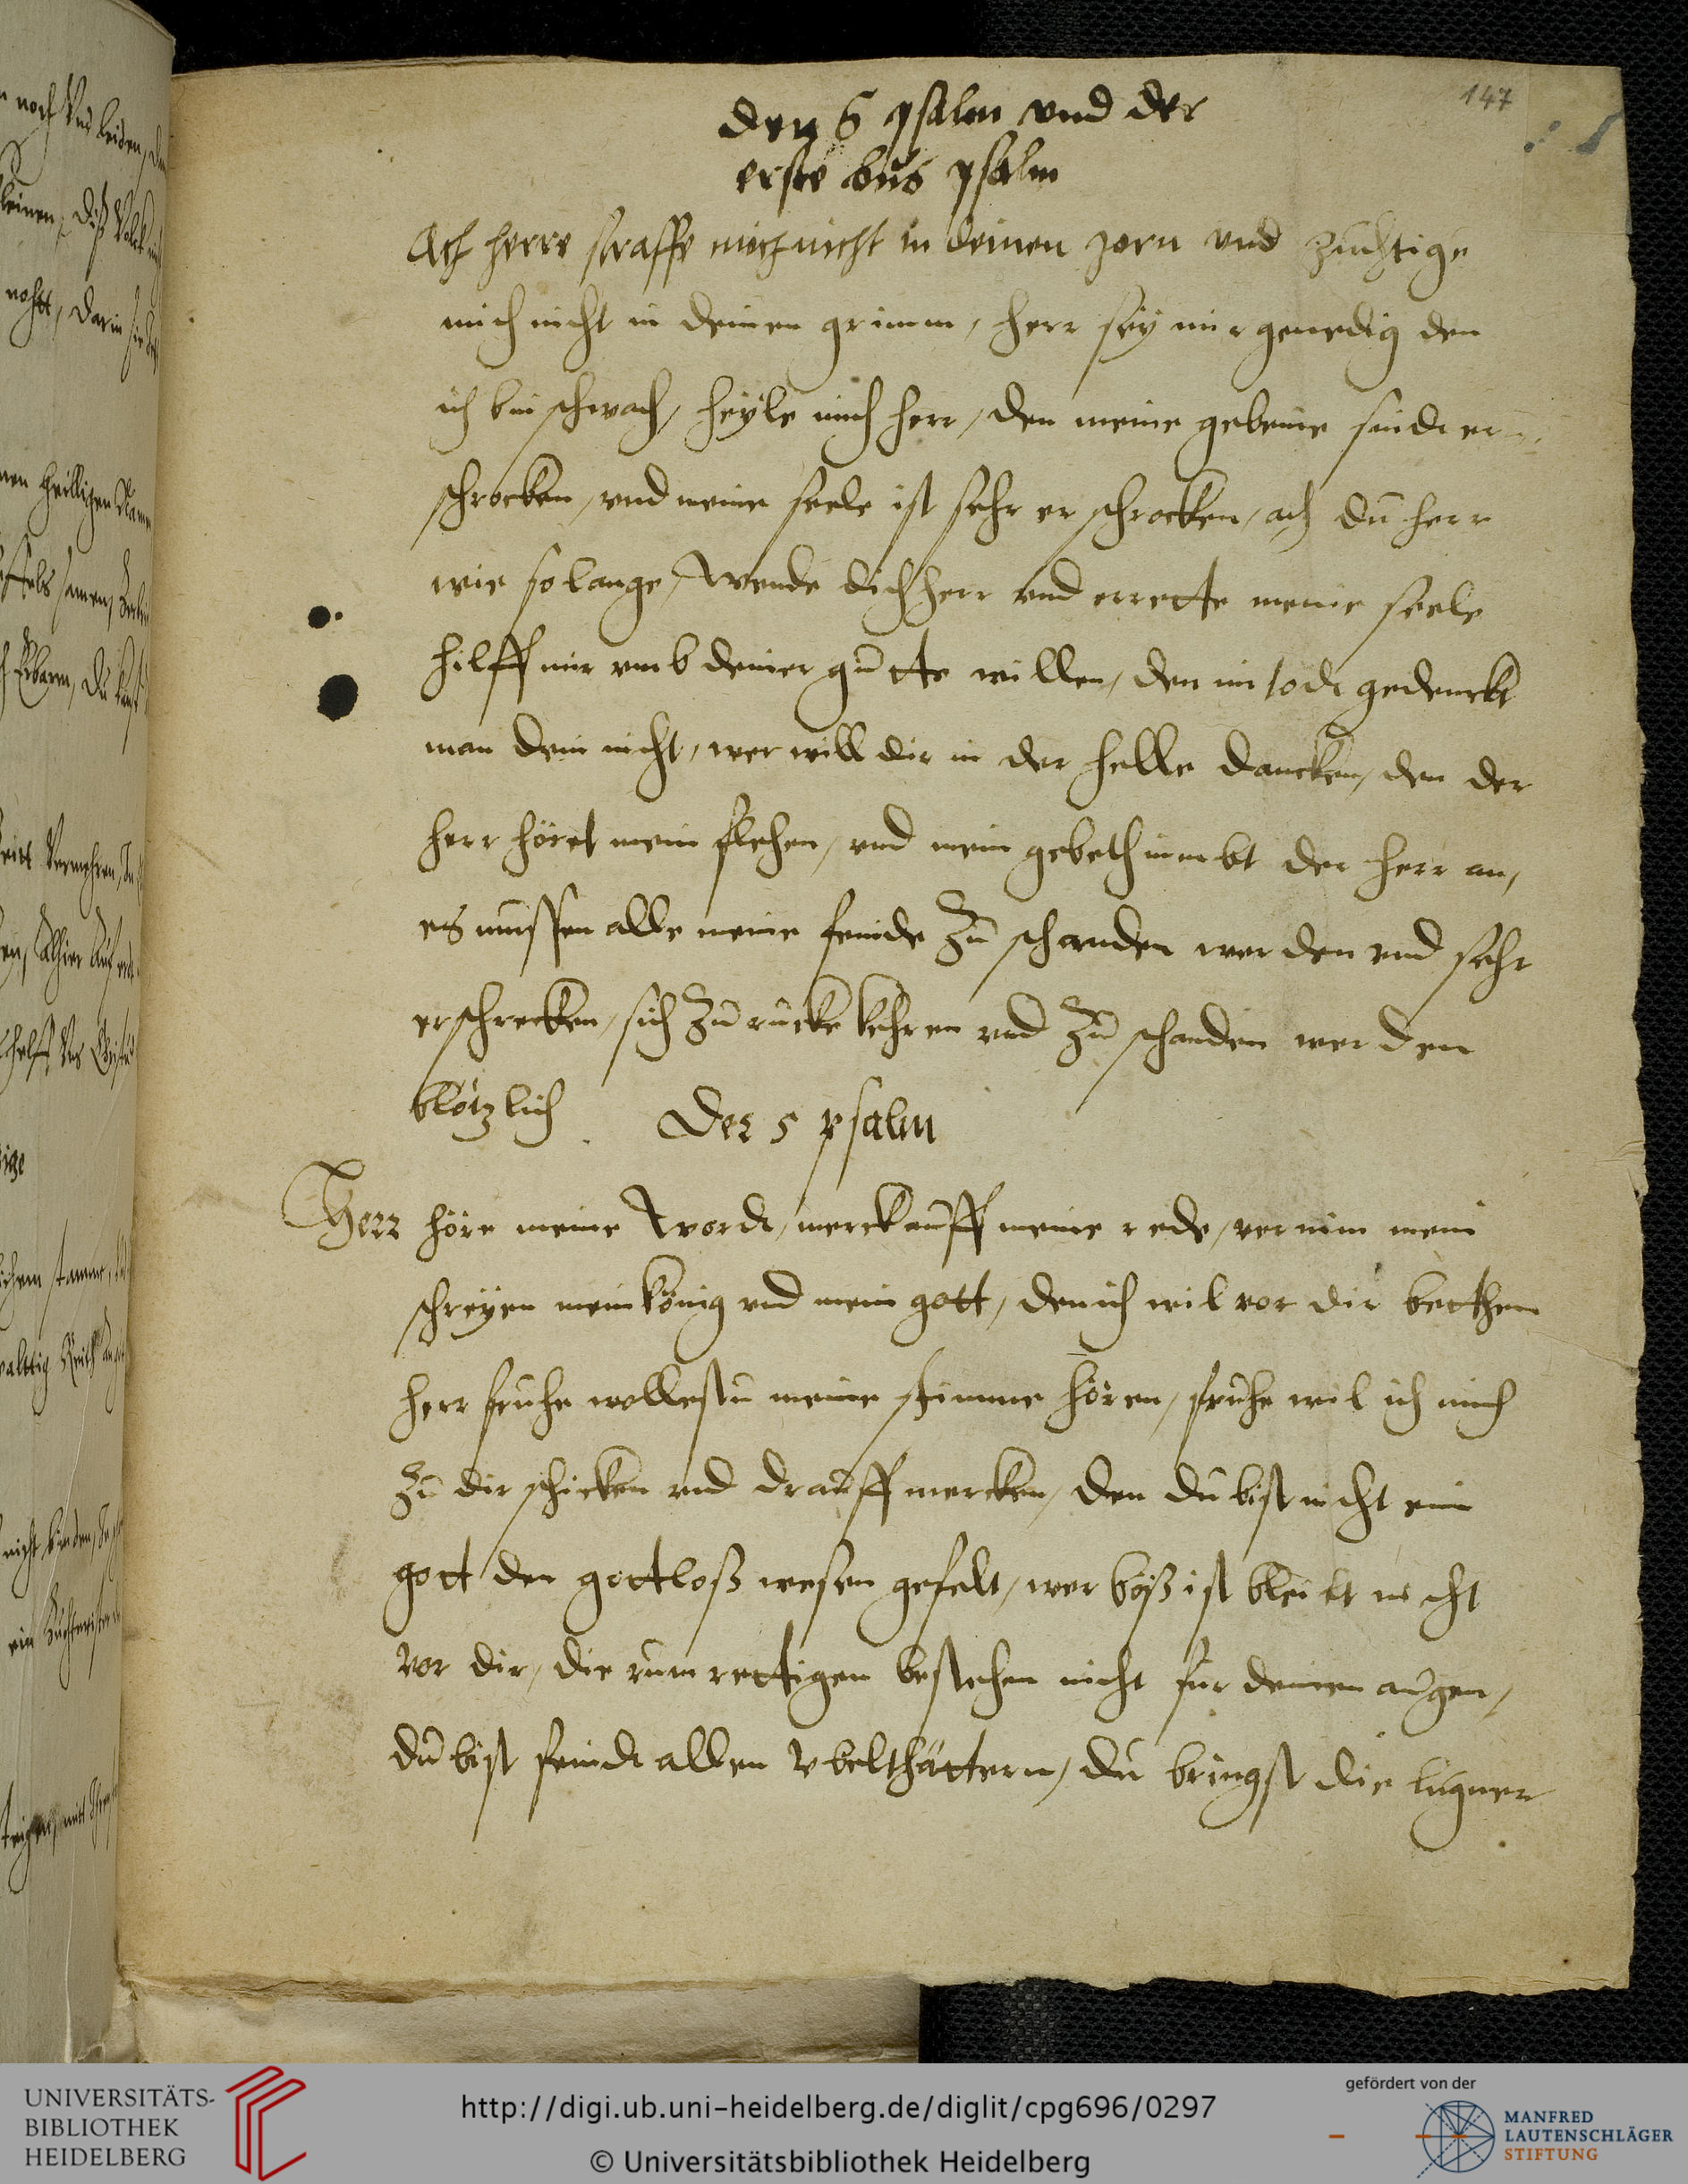 147
der 6 psalm vnd der
erste bus psalm
Ach herre straffe mich nicht in deinen zorn vnd zuchtige
mich nicht in deinen grimm, herr sey mir genedig den
ich bin schwach, heyle mich herr, den meine gebeine sindt er
schrocken, vnd meine seele ist sehr er schrocken, ach du herr
wie so lange, wende dich herr vnd errette meine seele
hilff mir vmb deiner gutte willen, den im tode gedenckt
man dein nicht, wer will dir in der helle dancken, den der
herr höret mein flehen, vnd mein gebeth nimbt der herr an,
es mussen alle meine feinde zu schanden wer den vnd sehr
erschrecken, sich zu rucke kehren vnd zu schanden wer den
blötzlich. Der 5 psalm
Herr höre meine wordt, merck auff meine rede, vernim mein
schreyen mein könig vnd mein gott, den ich wil vor dir betthen
herr fruhe wollestu meine stimme hören, fruhe wil ich mich
zu dir schicken vnd drauff mercken, den du bist nicht ein
gott der gottloß wesen gefelt, wer böß ist bleibt nicht
vor dir, die rumrettigen bestehen nicht fur deinen augen,
du bist feindt allen vbelthättern, du bringst die lugner
UNIVERSITÄTS-
BIBLIOTHEK
HEIDELBERG
http://digi.ub.uni-heidelberg.de/diglit/cpg696/0297
© Universitätsbibliothek Heidelberg
gefördert von der
MANFRED
LAUTENSCHLÄGER
STIFTUNG